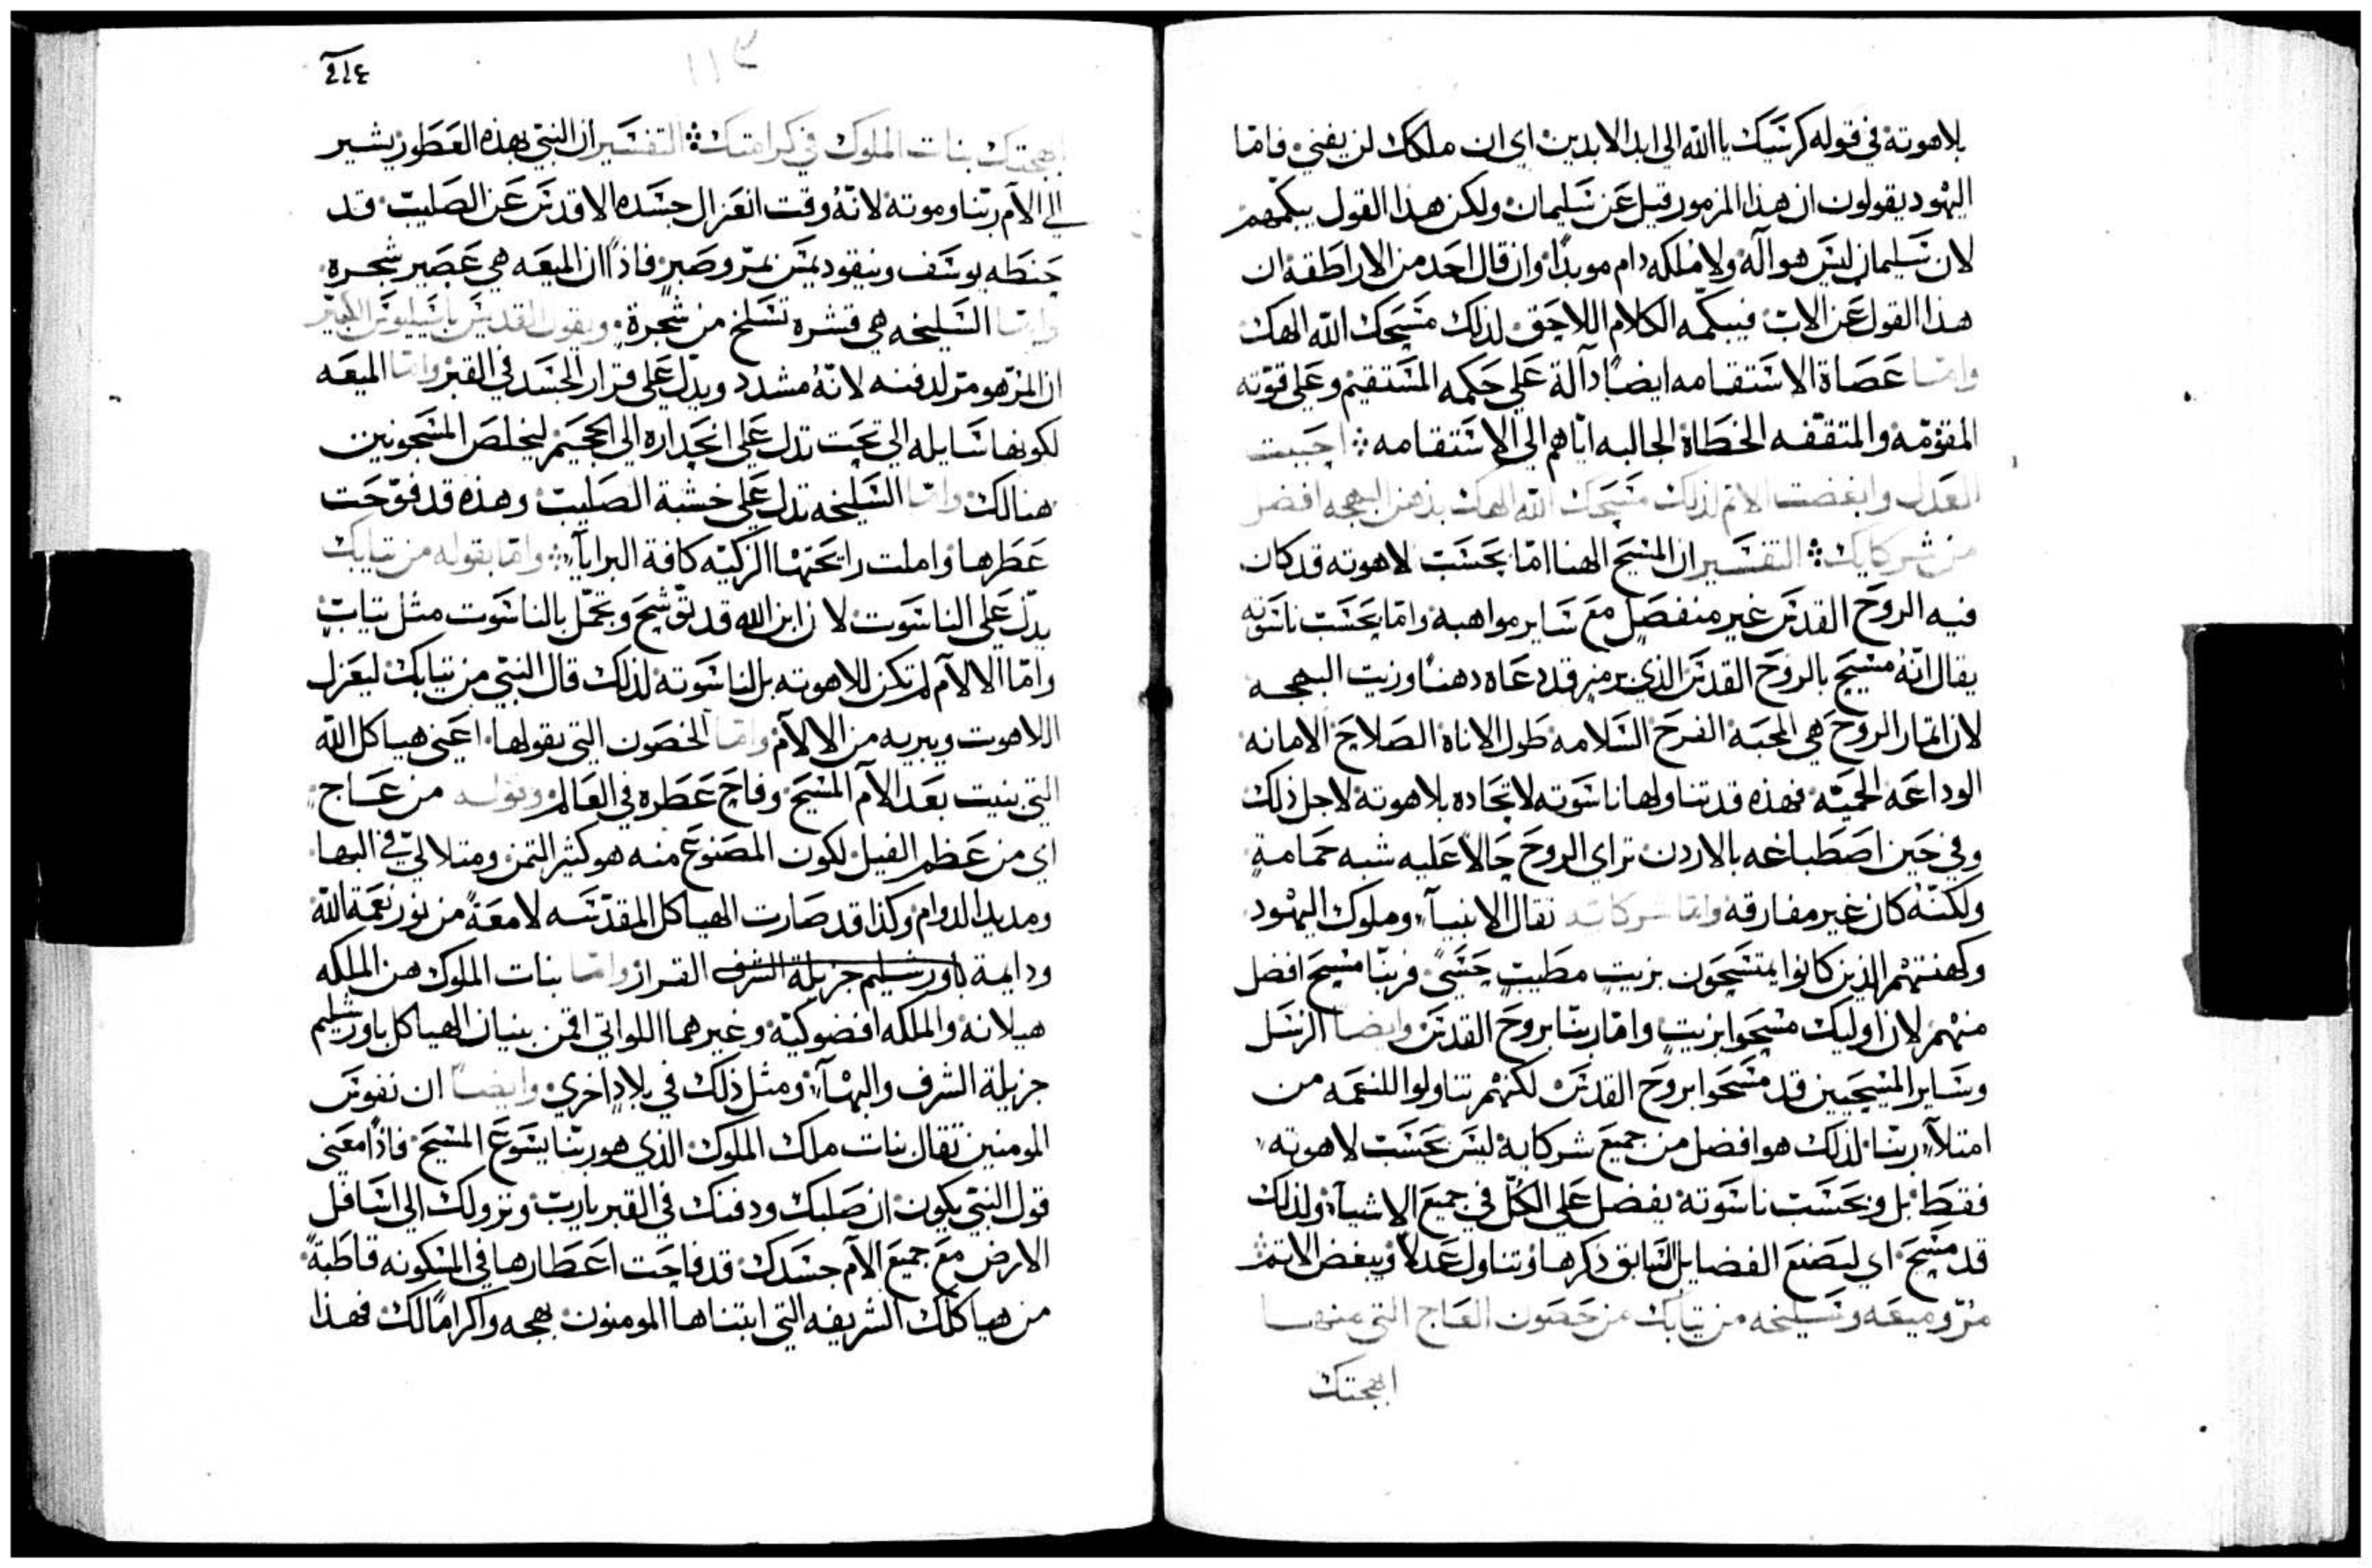 بلاهوته في قوله كرسيك يا الله الى ابد الابدين اي ان ملكك لن يفنى فاما
اليهود يقولون ان هذا المزمور قيل عن سليمان ولكن هذا القول يبكمهم
لان سليمان ليس هو اله ولا ملكه دام موبدًا وان قال احد من الاراطقه ان
هذا القول عن الاب فيبكمه الكلام اللاحق لذلك مسحك الله الهك
واما عصاة الاستقامه ايضًا دالة على حكمه المستقيم وعلى قوته
المقومه والمتقفه الخطاة الجالبه اياهم الى الاستقامه احببت
العدل وابغضت الاتم لذلك مسحك الله الهك بدهن البهجه افضل
من شركايك التفسير ان المسيح الهنا اما بحسب لاهوته قد كان
فيه الروح القدس غير منفصل مع ساير مواهبه واما بحسب ناسوته
يقال انه مسيح بالروح القدس الذي برمز قد دعاه دهنًا وزيت البهجه
لان اتمار الروح هي المحبه الفرح السلامه طول الاناة الصلاح الامانه
الوداعه الحميه فهذه قد تناولها ناسوته لاتحاده بلاهوته لاجل ذلك
وفي حين اصطباغه بالاردن تراى الروح حالًا عليه شبه حمامة
ولكنه كان غير مفارقه واما شركايه تقال الانبيآ وملوك اليهود
وكهنتهم الذين كانوا يمتسحون بزيت مطيب حسي فربنا مسيح افضل
منهم لان اوليك مسحوا بزيت واما ربنا بروح القدس وايضًا الرسل
وساير المسيحيين قد مسحوا بروح القدس لكنهم تناولوا النعمه من
امتلآ ربنا لذلك هو افضل من جميع شركايه ليس بحسب لاهوته
فقط بل وبحسب ناسوته يفضل على الكل في جميع الاشيآ ولذلك
قد مسح اي ليصنع الفضايل السابق ذكرها وتناول عدلًا ويبغض الاتم
مر وميعه وسليخه من تيابك من حصون العاج التي منها
ابهجتك
٤١٤
ابهجتك بنات الملوك في كرامتك التفسير ان النبي بهذه العطور يشير
الى الام ربنا وموته لانه وقت انعزال جسده الاقدس عن الصليب قد
حنطه يوسف ونيقوديمس بمر وصبر فاذًا ان الميعه هي عصير شجره
واما السليخه هي قشره تسلخ من شجرة ويقول القديس باسيليوس الكبير
ان المر هو مر لدفنه لانه مشدد ويدل على قرار الجسد في القبر واما الميعه
لكونها سايله الى تحت تدل على انحداره الى الجحيم ليخلص المسجونين
هنالك واما السليخه تدل على خشبة الصليب وهذه قد فوحت
عطرها واملت رايحتها الزكيه كافة البرايا واما بقوله من تيابك
يدل على الناسوت لان ابن الله قد توشح وتجمل بالناسوت مثل تياب
واما الالام لم تكن للاهوته بل لناسوته لذلك قال النبي من تيابك ليعزل
اللاهوت ويبريه من الالام واما الحصون التي يقولها اعني هياكل الله
التي بنيت بعد الام المسيح وفاح عطره في العالم وقوله من عاج
اي من عظم الفيل لكون المصنوع منه هو كثير التمن ومتلالي في البها
ومديد الدوام وكذا قد صارت الهياكل المقدسه لامعةً من نور نعمة الله
ودايمة باورشليم جزيلة الشرف القرار واما بنات الملوك هن الملكه
هيلانه والملكه افضوكيه وغيرهما اللواتي اقمن بنيان الهياكل باورشليم
جزيلة الشرف والبهآ ومثل ذلك في بلاد اخرى وايضًا ان نفوس
المومنين تقال بنات ملك الملوك الذي هو ربنا يسوع المسيح فاذًا معنى
قول النبي يكون ان صلبك ودفنك في القبر يارب ونزولك الى اسافل
الارض مع جميع الام جسدك قد فاحت اعطارها في المسكونه قاطبةً
من هياكلك الشريفه التي ابتناها المومنون بهجه واكرامًا لك فهذا